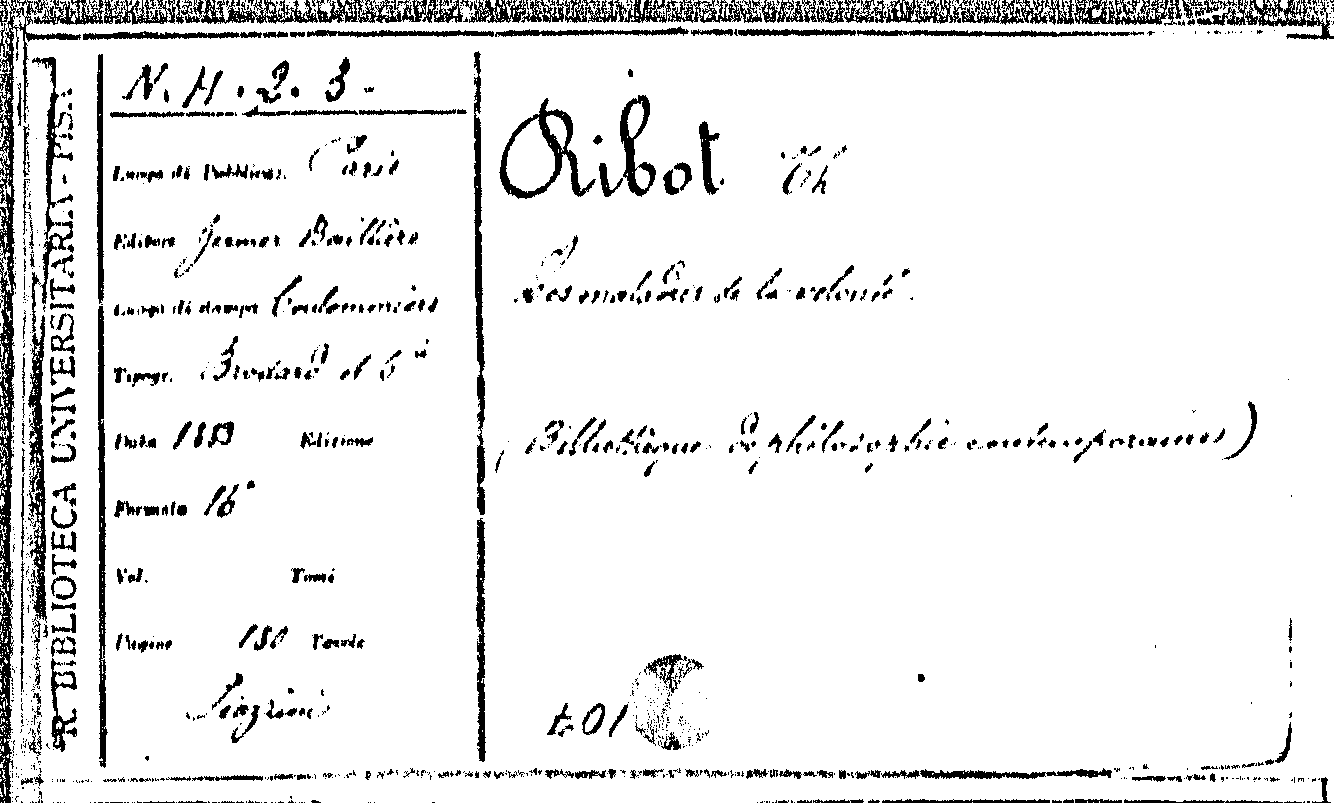 R. BIBLIOTECA UNIVERSITARIA - PISA
N. H. 2. 3.
Luogo di Pubblicaz. Paris
Editore Germer Baillière
Luogo di stampa Coulommiers
Tipogr. Brodard et Cie
Data 1883 Edizione
Formato 16°
Vol. Tomi
Pagine 180 Tavole
Ribot Th
Les maladies de la volonté.
(Bibliothèque de philosophie contemporaine)